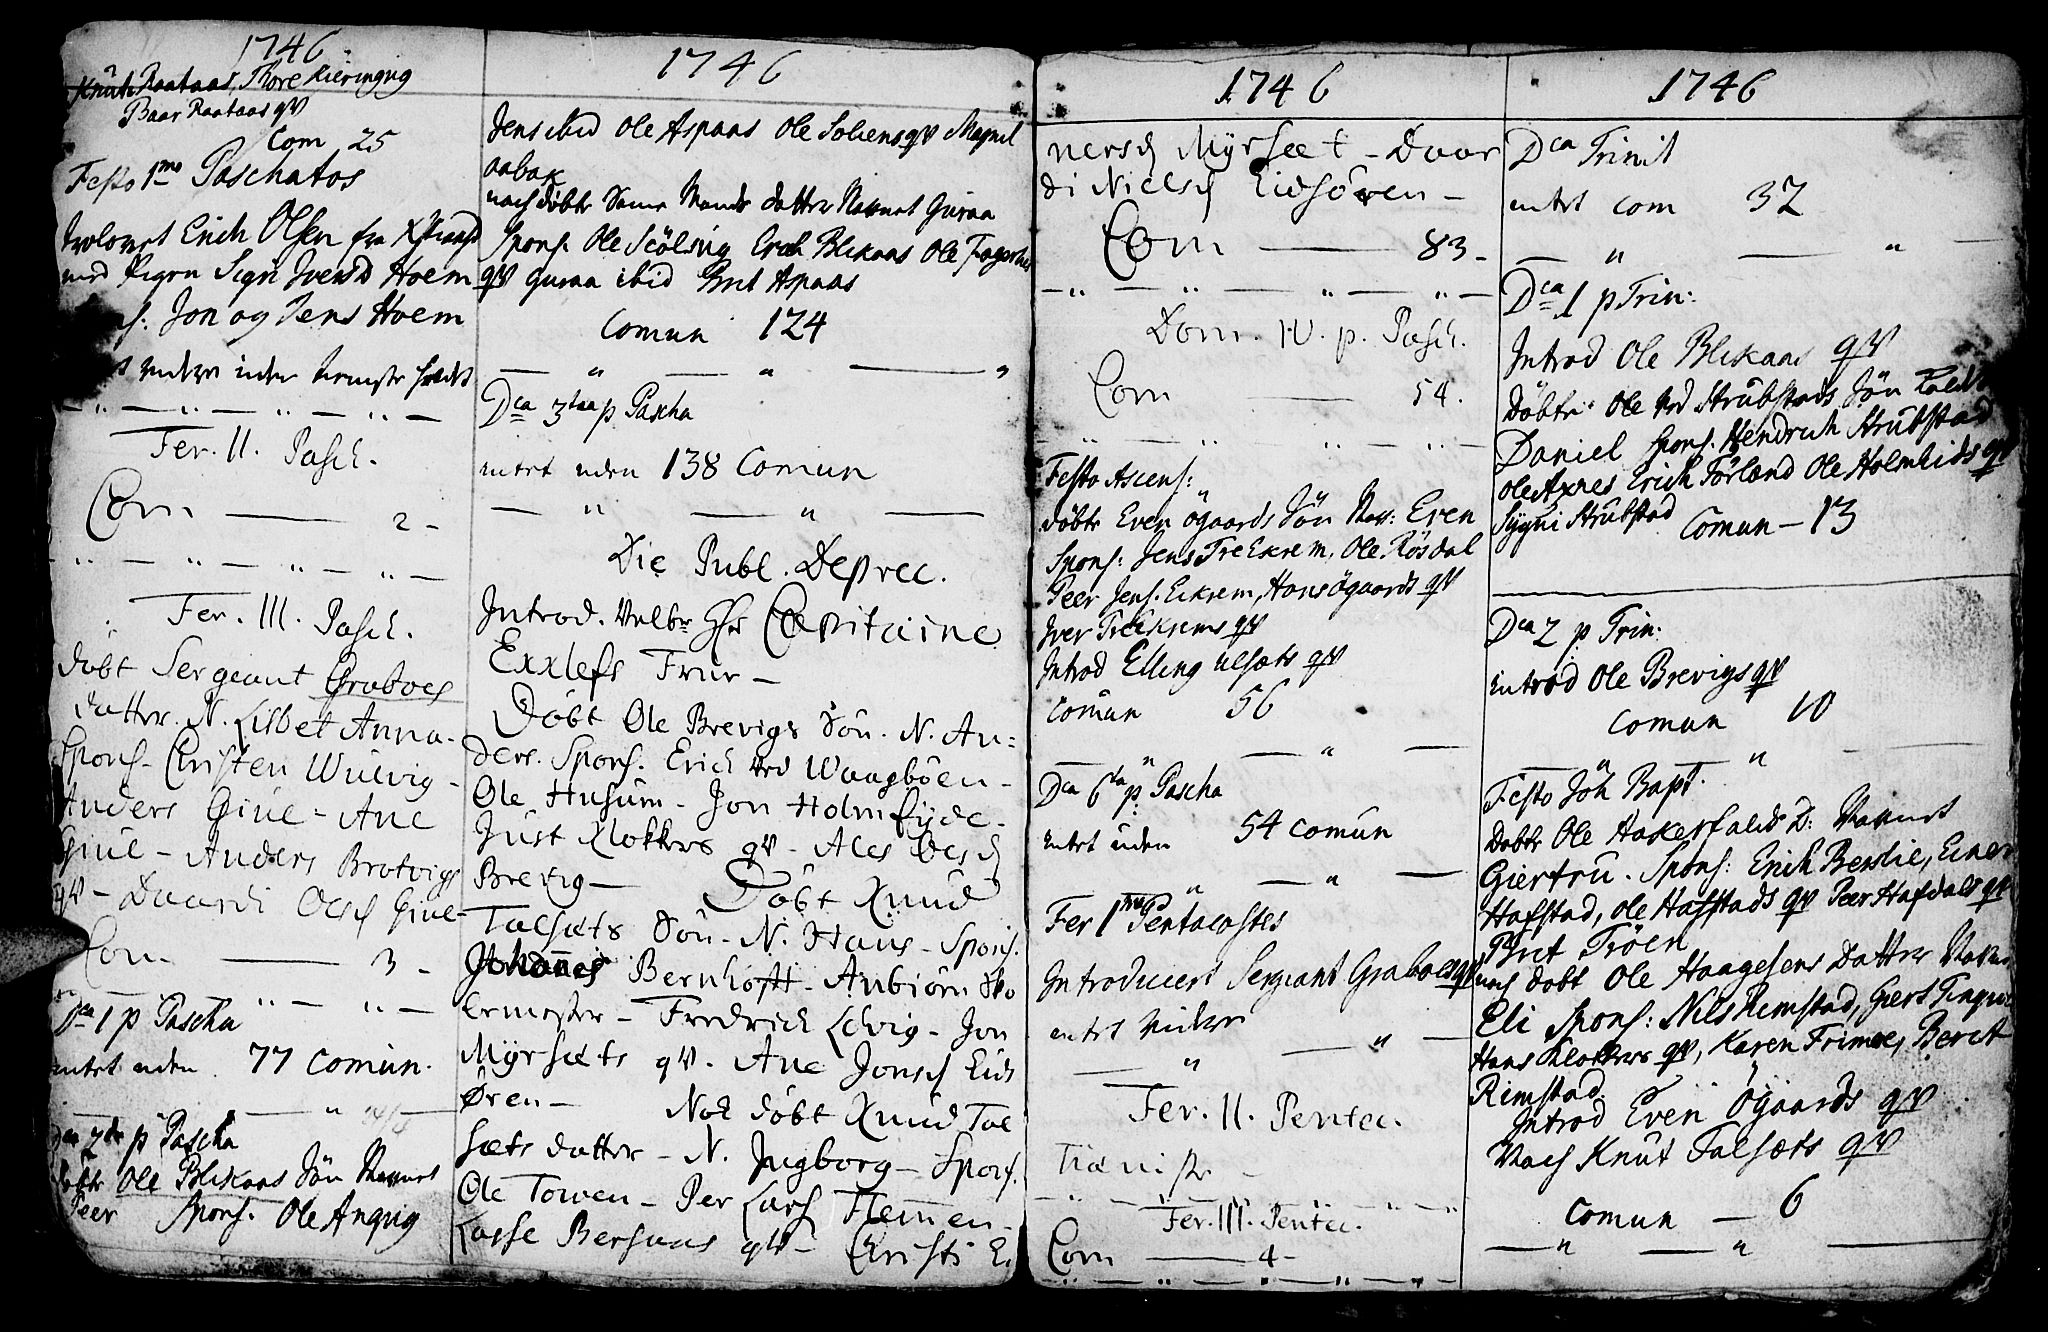 1746
Knut Raataas, Thore Kieringvig
Baar Raataas qv
Com 25
Festo 1mo Paschatos
trolovet Erich Olsen fra
med Pigen Sigri Iversd Hoem
Jon og Jens Hoem
videre uden
Fer. II. Pasch.
Com 2
Fer. III. Pasch.
døbt Sergeant Graboes
datter. N. Lisbet Anna.
Spons. Christen Wulvig
Anders Giue - Ane
Giue - Anders Brotvigs
qv - Daardi Olsd Giue
Com 3
Dca 1 p Pascha
intet uden 77 Comun.
Dca 2da p Pascha
døbte Ole Blikaas Søn Navnet
Peer Spons. Ole Angvig
1746
Jens ibid Ole Aspaas Ole Soliens qv Magnil
aabak
nach døbte Samme Mands datter Navnet Guraa
Spons. Ole Scölsvig Erich Blikaas Ole
qv guraa ibid Brit Aspaas
Comun 124
Dca 3tia p Pascha
intet uden 138 Comun
Die Publ. Deprec.
Introd. Velbr Hr Capitaine
Exxlefs Frue
Døbt Ole Brevigs Søn. N. An=
ders. Spons. Erich ved Waagbøen
Ole Husum - Jon Holmlijde.
Just Klokkers qv - Ales Olsd
Brevig - Døbt Knud
Talsæts Søn - N. Hans - Spons.
Johannes Bernhoft - Anbiörn Sko
lemester - Fredrich Ledvig - Jon
Myrsæts qv. Ane Jonsd Eids
Øren - Nok døbt Knud Tal
sæts datter - N. Ingborg - Spons.
Ole Towen - Per Lars Flemmen
Lasse Bersaas qv - Christi E.
1746
nersd Myrsæt - Daar
di Nielsd Eidsören
Com 83
Dom. IV. p. Pasch.
Com 54.
Festo Ascens:
døbte Even øgaards Søn Nav: Even
Spons: Jens Tre Ekrem, Ole Røsdal
Peer Jens. Eikrem, Hans øgaards qv
Iver Treekrems qv
Introd Elling ulsæts qv
Comun 56
Dca 6ta p Pascha
intet uden 54 comun
Fer 1ma Pentacostes
Introduceret Sergeant Graboes qv
intet videre
Fer. II. Pentec.
Fer. III. Pentec.
Com 4
1746
Dca Trinit
intet com 32
Dca 1 p Trin:
Introd Ole Blikaas qv
Døbte Ole ved Strubstads Søn
Daniel Spons. Hendrich Strubstad
Ole Axnes Erich Förland Ole Holmlids qv
Sygni Strubstad Comun - 13
Dca 2 p Trin:
introd Ole Brevigs qv
comun 10
Festo Joh Bapt.
Døbte Ole Aakersalids D: Navnet
Giertru. Spons: Erich Berslie, Einer
Hafstad, Ole Hafstads qv Peer Hafdals qv
Brit Tröen
nach døbt Ole Haagesens datter
Eli Spons: Nils Rimstad, Giert
Hans Klokkers qv, Karen Frimoe, Berit
Rimstad.
Introd Even Øgaards qv
Nach Knut Talsæts qv
Comun - 6